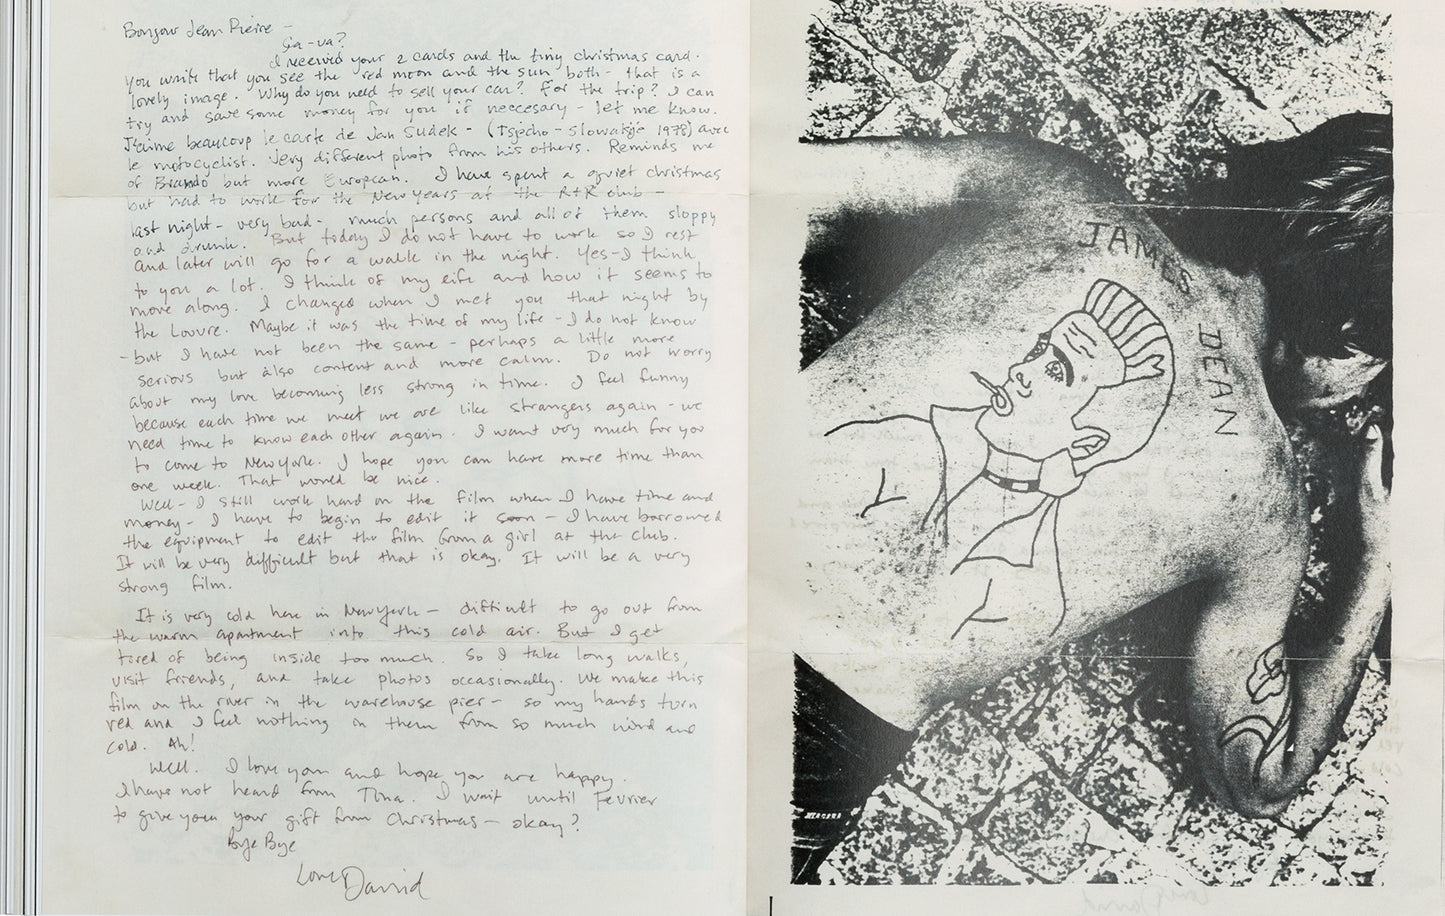 Bonjour Jean Pierre -
Ça-va?
I received your 2 cards and the tiny christmas card.
You write that you see the red moon and the sun both - that is a
lovely image. Why do you need to sell your car? For the trip? I can
try and save some money for you if neccesary - let me know.
J'aime beaucoup le carte de Jan Sudek - (Tsjecho-Slowakije 1978) avec
le motocyclist. Very different photo from his others. Reminds me
of Brando but more European. I have spent a quiet christmas
but had to work for the New Years at the R+R club -
last night - very bad - much persons and all of them sloppy
and drunk. But today I do not have to work so I rest
and later will go for a walk in the night. Yes - I think
to you a lot. I think of my life and how it seems to
move along. I changed when I met you that night by
the Louvre. Maybe it was the time of my life - I do not know
- but I have not been the same - perhaps a little more
serious but also content and more calm. Do not worry
about my love becoming less strong in time. I feel funny
because each time we meet we are like strangers again - we
need time to know each other again. I want very much for you
to come to New York. I hope you can have more time than
one week. That would be nice.
Well - I still work hard on the film when I have time and
money - I have to begin to edit it soon - I have borrowed
the equipment to edit the film from a girl at the club.
It will be very difficult but that is okay. It will be a very
strong film.
It is very cold here in New York - difficult to go out from
the warm apartment into this cold air. But I get
tired of being inside too much. So I take long walks,
visit friends, and take photos occasionally. We make this
film on the river in the warehouse pier - so my hands turn
red and I feel nothing in them from so much wind and
cold. Ah!
Well. I love you and hope you are happy.
I have not heard from Tina. I wait until Fevrier
to give you your gift from Christmas - okay?
Bye Bye
Love David
JAMES
DEAN
NIAGARA